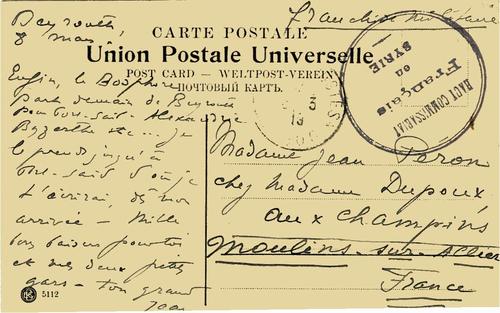 Beyrouth
8 mars
Franchise Militaire
CARTE POSTALE
Union Postale Universelle
POST CARD — WELTPOST-VEREIN
ПОЧТОВЫЙ КАРТЪ.
HAUT COMMISSARIAT
Français
en
SYRIE
3
19
Enfin, le Bosphore
part demain de Beyrouth
pour Port-Saïd - Alexandrie
Bizerthe etc... je
le prends jusqu'à
Port-Saïd d'où je
t'écrirai, dès mon
arrivée - Mille
bons baisers pour toi
et mes deux petits
gars - ton grand
Jean
Madame Jean Peron
chez Madame Dupoux
aux Champins
Moulins-sur-Allier
France
5112